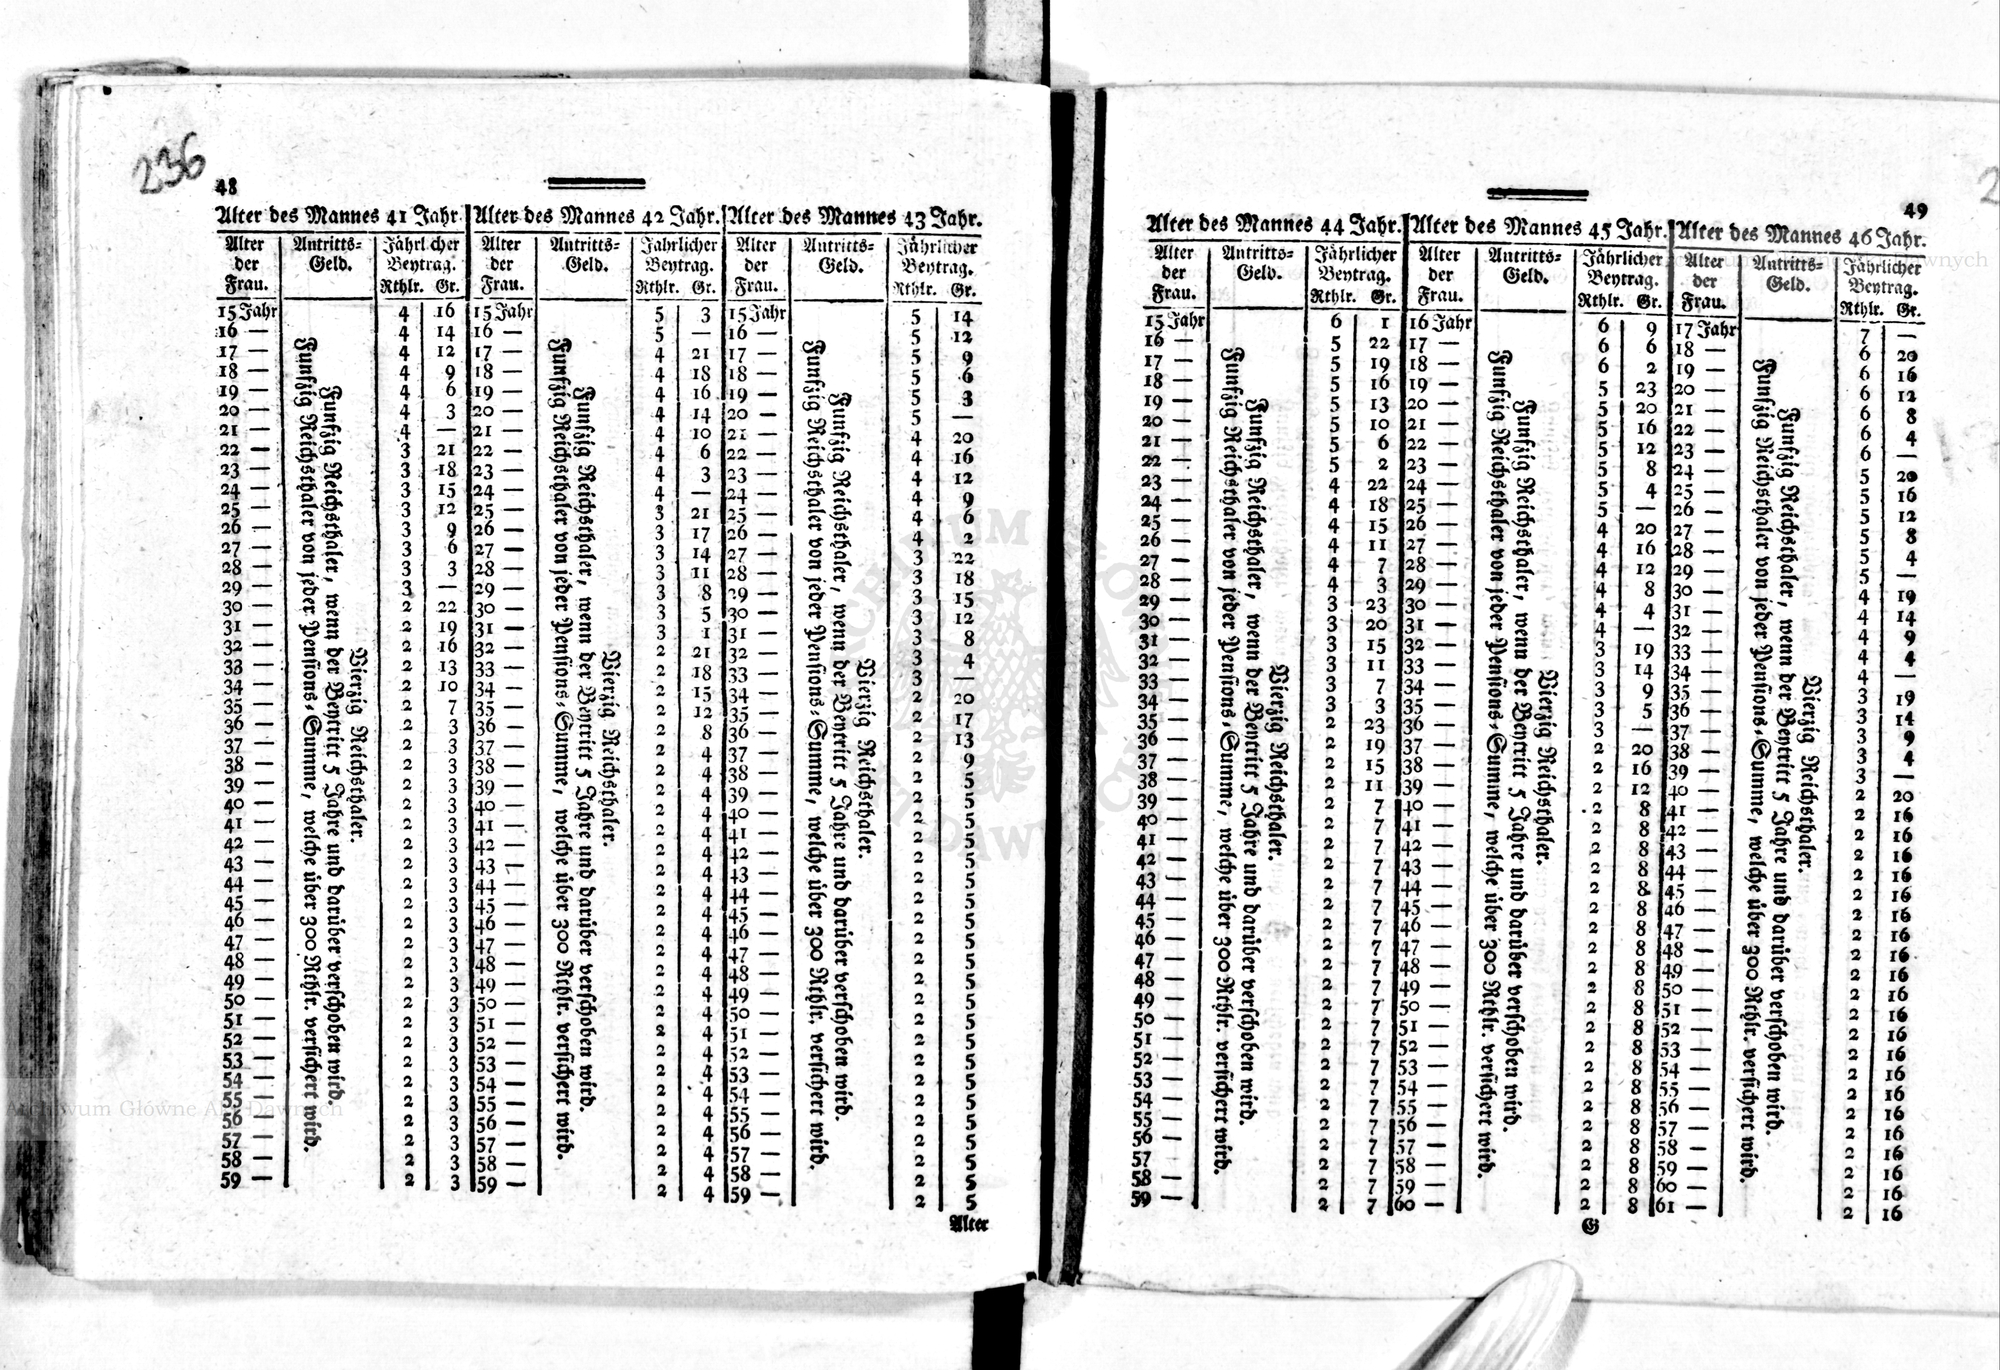 236
48
Alter des Mannes 41 Jahr. Alter des Mannes 42 Jahr. Alter des Mannes 43 Jahr.
Alter der Frau. Antritts-Geld. Jährlicher Beytrag. Alter der Frau. Antritts-Geld. Jährlicher Beytrag. Alter der Frau. Antritts-Geld. Jährlicher Beytrag.
Rthlr. Gr. Rthlr. Gr. Rthlr. Gr.
15 Jahr 4 16 15 Jahr 5 3 15 Jahr 5 14
16 — 4 14 16 — 5 — 16 — 5 12
17 — 4 12 17 — 4 21 17 — 5 9
18 — 4 9 18 — 4 18 18 — 5 6
19 — 4 6 19 — 4 16 19 — 5 3
20 — 4 3 20 — 4 14 20 — 5 —
21 — 4 — 21 — 4 10 21 — 4 20
22 — 3 21 22 — 4 6 22 — 4 16
23 — 3 18 23 — 4 3 23 — 4 12
24 — 3 15 24 — 4 — 24 — 4 9
25 — 3 12 25 — 3 21 25 — 4 6
26 — 3 9 26 — 3 17 26 — 4 2
27 — 3 6 27 — 3 14 27 — 3 22
28 — 3 3 28 — 3 11 28 — 3 18
29 — 3 — 29 — 3 8 29 — 3 15
30 — 2 22 30 — 3 5 30 — 3 12
31 — 2 19 31 — 3 1 31 — 3 8
32 — 2 16 32 — 2 21 32 — 3 4
33 — 2 13 33 — 2 18 33 — 3 —
34 — 2 10 34 — 2 15 34 — 2 20
35 — 2 7 35 — 2 12 35 — 2 17
36 — 2 3 36 — 2 8 36 — 2 13
37 — 2 3 37 — 2 4 37 — 2 9
38 — 2 3 38 — 2 4 38 — 2 5
39 — 2 3 39 — 2 4 39 — 2 5
40 — 2 3 40 — 2 4 40 — 2 5
41 — 2 3 41 — 2 4 41 — 2 5
42 — 2 3 42 — 2 4 42 — 2 5
43 — 2 3 43 — 2 4 43 — 2 5
44 — 2 3 44 — 2 4 44 — 2 5
45 — 2 3 45 — 2 4 45 — 2 5
46 — 2 3 46 — 2 4 46 — 2 5
47 — 2 3 47 — 2 4 47 — 2 5
48 — 2 3 48 — 2 4 48 — 2 5
49 — 2 3 49 — 2 4 49 — 2 5
50 — 2 3 50 — 2 4 50 — 2 5
51 — 2 3 51 — 2 4 51 — 2 5
52 — 2 3 52 — 2 4 52 — 2 5
53 — 2 3 53 — 2 4 53 — 2 5
54 — 2 3 54 — 2 4 54 — 2 5
55 — 2 3 55 — 2 4 55 — 2 5
56 — 2 3 56 — 2 4 56 — 2 5
57 — 2 3 57 — 2 4 57 — 2 5
58 — 2 3 58 — 2 4 58 — 2 5
59 — 2 3 59 — 2 4 59 — 2 5
Vierzig Reichsthaler.
Funfzig Reichsthaler, wenn der Beytritt 5 Jahre und darüber verschoben wird.
Funfzig Reichsthaler von jeder Pensions-Summe, welche über 300 Rthlr. versichert wird.
Vierzig Reichsthaler.
Funfzig Reichsthaler, wenn der Beytritt 5 Jahre und darüber verschoben wird.
Funfzig Reichsthaler von jeder Pensions-Summe, welche über 300 Rthlr. versichert wird.
Vierzig Reichsthaler.
Funfzig Reichsthaler, wenn der Beytritt 5 Jahre und darüber verschoben wird.
Funfzig Reichsthaler von jeder Pensions-Summe, welche über 300 Rthlr. versichert wird.
Alter
49
Alter des Mannes 44 Jahr. Alter des Mannes 45 Jahr. Alter des Mannes 46 Jahr.
Alter der Frau. Antritts-Geld. Jährlicher Beytrag. Alter der Frau. Antritts-Geld. Jährlicher Beytrag. Alter der Frau. Antritts-Geld. Jährlicher Beytrag.
Rthlr. Gr. Rthlr. Gr. Rthlr. Gr.
15 Jahr 6 1 16 Jahr 6 9 17 Jahr 7 —
16 — 5 22 17 — 6 6 18 — 6 20
17 — 5 19 18 — 6 2 19 — 6 16
18 — 5 16 19 — 5 23 20 — 6 12
19 — 5 13 20 — 5 20 21 — 6 8
20 — 5 10 21 — 5 16 22 — 6 4
21 — 5 6 22 — 5 12 23 — 6 —
22 — 5 2 23 — 5 8 24 — 5 20
23 — 4 22 24 — 5 4 25 — 5 16
24 — 4 18 25 — 5 — 26 — 5 12
25 — 4 15 26 — 4 20 27 — 5 8
26 — 4 11 27 — 4 16 28 — 5 4
27 — 4 7 28 — 4 12 29 — 5 —
28 — 4 3 29 — 4 8 30 — 4 19
29 — 3 23 30 — 4 4 31 — 4 14
30 — 3 20 31 — 4 — 32 — 4 9
31 — 3 15 32 — 3 19 33 — 4 4
32 — 3 11 33 — 3 14 34 — 4 —
33 — 3 7 34 — 3 9 35 — 3 19
34 — 3 3 35 — 3 5 36 — 3 14
35 — 2 23 36 — 3 — 37 — 3 9
36 — 2 19 37 — 2 20 38 — 3 4
37 — 2 15 38 — 2 16 39 — 3 —
38 — 2 11 39 — 2 12 40 — 2 20
39 — 2 7 40 — 2 8 41 — 2 16
40 — 2 7 41 — 2 8 42 — 2 16
41 — 2 7 42 — 2 8 43 — 2 16
42 — 2 7 43 — 2 8 44 — 2 16
43 — 2 7 44 — 2 8 45 — 2 16
44 — 2 7 45 — 2 8 46 — 2 16
45 — 2 7 46 — 2 8 47 — 2 16
46 — 2 7 47 — 2 8 48 — 2 16
47 — 2 7 48 — 2 8 49 — 2 16
48 — 2 7 49 — 2 8 50 — 2 16
49 — 2 7 50 — 2 8 51 — 2 16
50 — 2 7 51 — 2 8 52 — 2 16
51 — 2 7 52 — 2 8 53 — 2 16
52 — 2 7 53 — 2 8 54 — 2 16
53 — 2 7 54 — 2 8 55 — 2 16
54 — 2 7 55 — 2 8 56 — 2 16
55 — 2 7 56 — 2 8 57 — 2 16
56 — 2 7 57 — 2 8 58 — 2 16
57 — 2 7 58 — 2 8 59 — 2 16
58 — 2 7 59 — 2 8 60 — 2 16
59 — 2 7 60 — 2 8 61 — 2 16
Vierzig Reichsthaler.
Funfzig Reichsthaler, wenn der Beytritt 5 Jahre und darüber verschoben wird.
Funfzig Reichsthaler von jeder Pensions-Summe, welche über 300 Rthlr. versichert wird.
Vierzig Reichsthaler.
Funfzig Reichsthaler, wenn der Beytritt 5 Jahre und darüber verschoben wird.
Funfzig Reichsthaler von jeder Pensions-Summe, welche über 300 Rthlr. versichert wird.
Vierzig Reichsthaler.
Funfzig Reichsthaler, wenn der Beytritt 5 Jahre und darüber verschoben wird.
Funfzig Reichsthaler von jeder Pensions-Summe, welche über 300 Rthlr. versichert wird.
G
Archiwum Główne Akt Dawnych